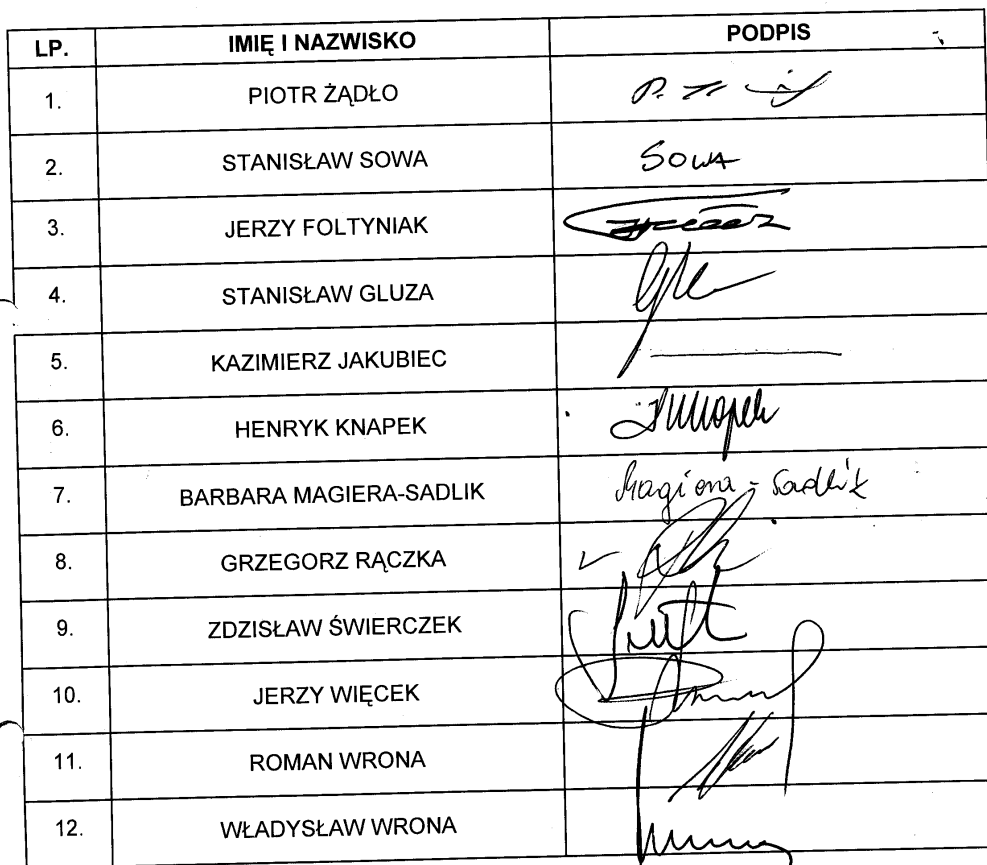 LP. IMIĘ I NAZWISKO PODPIS
1. PIOTR ŻĄDŁO
2. STANISŁAW SOWA Sowa
3. JERZY FOLTYNIAK
4. STANISŁAW GLUZA
5. KAZIMIERZ JAKUBIEC
6. HENRYK KNAPEK
7. BARBARA MAGIERA-SADLIK Magiera-Sadlik
8. GRZEGORZ RĄCZKA
9. ZDZISŁAW ŚWIERCZEK
10. JERZY WIĘCEK
11. ROMAN WRONA
12. WŁADYSŁAW WRONA